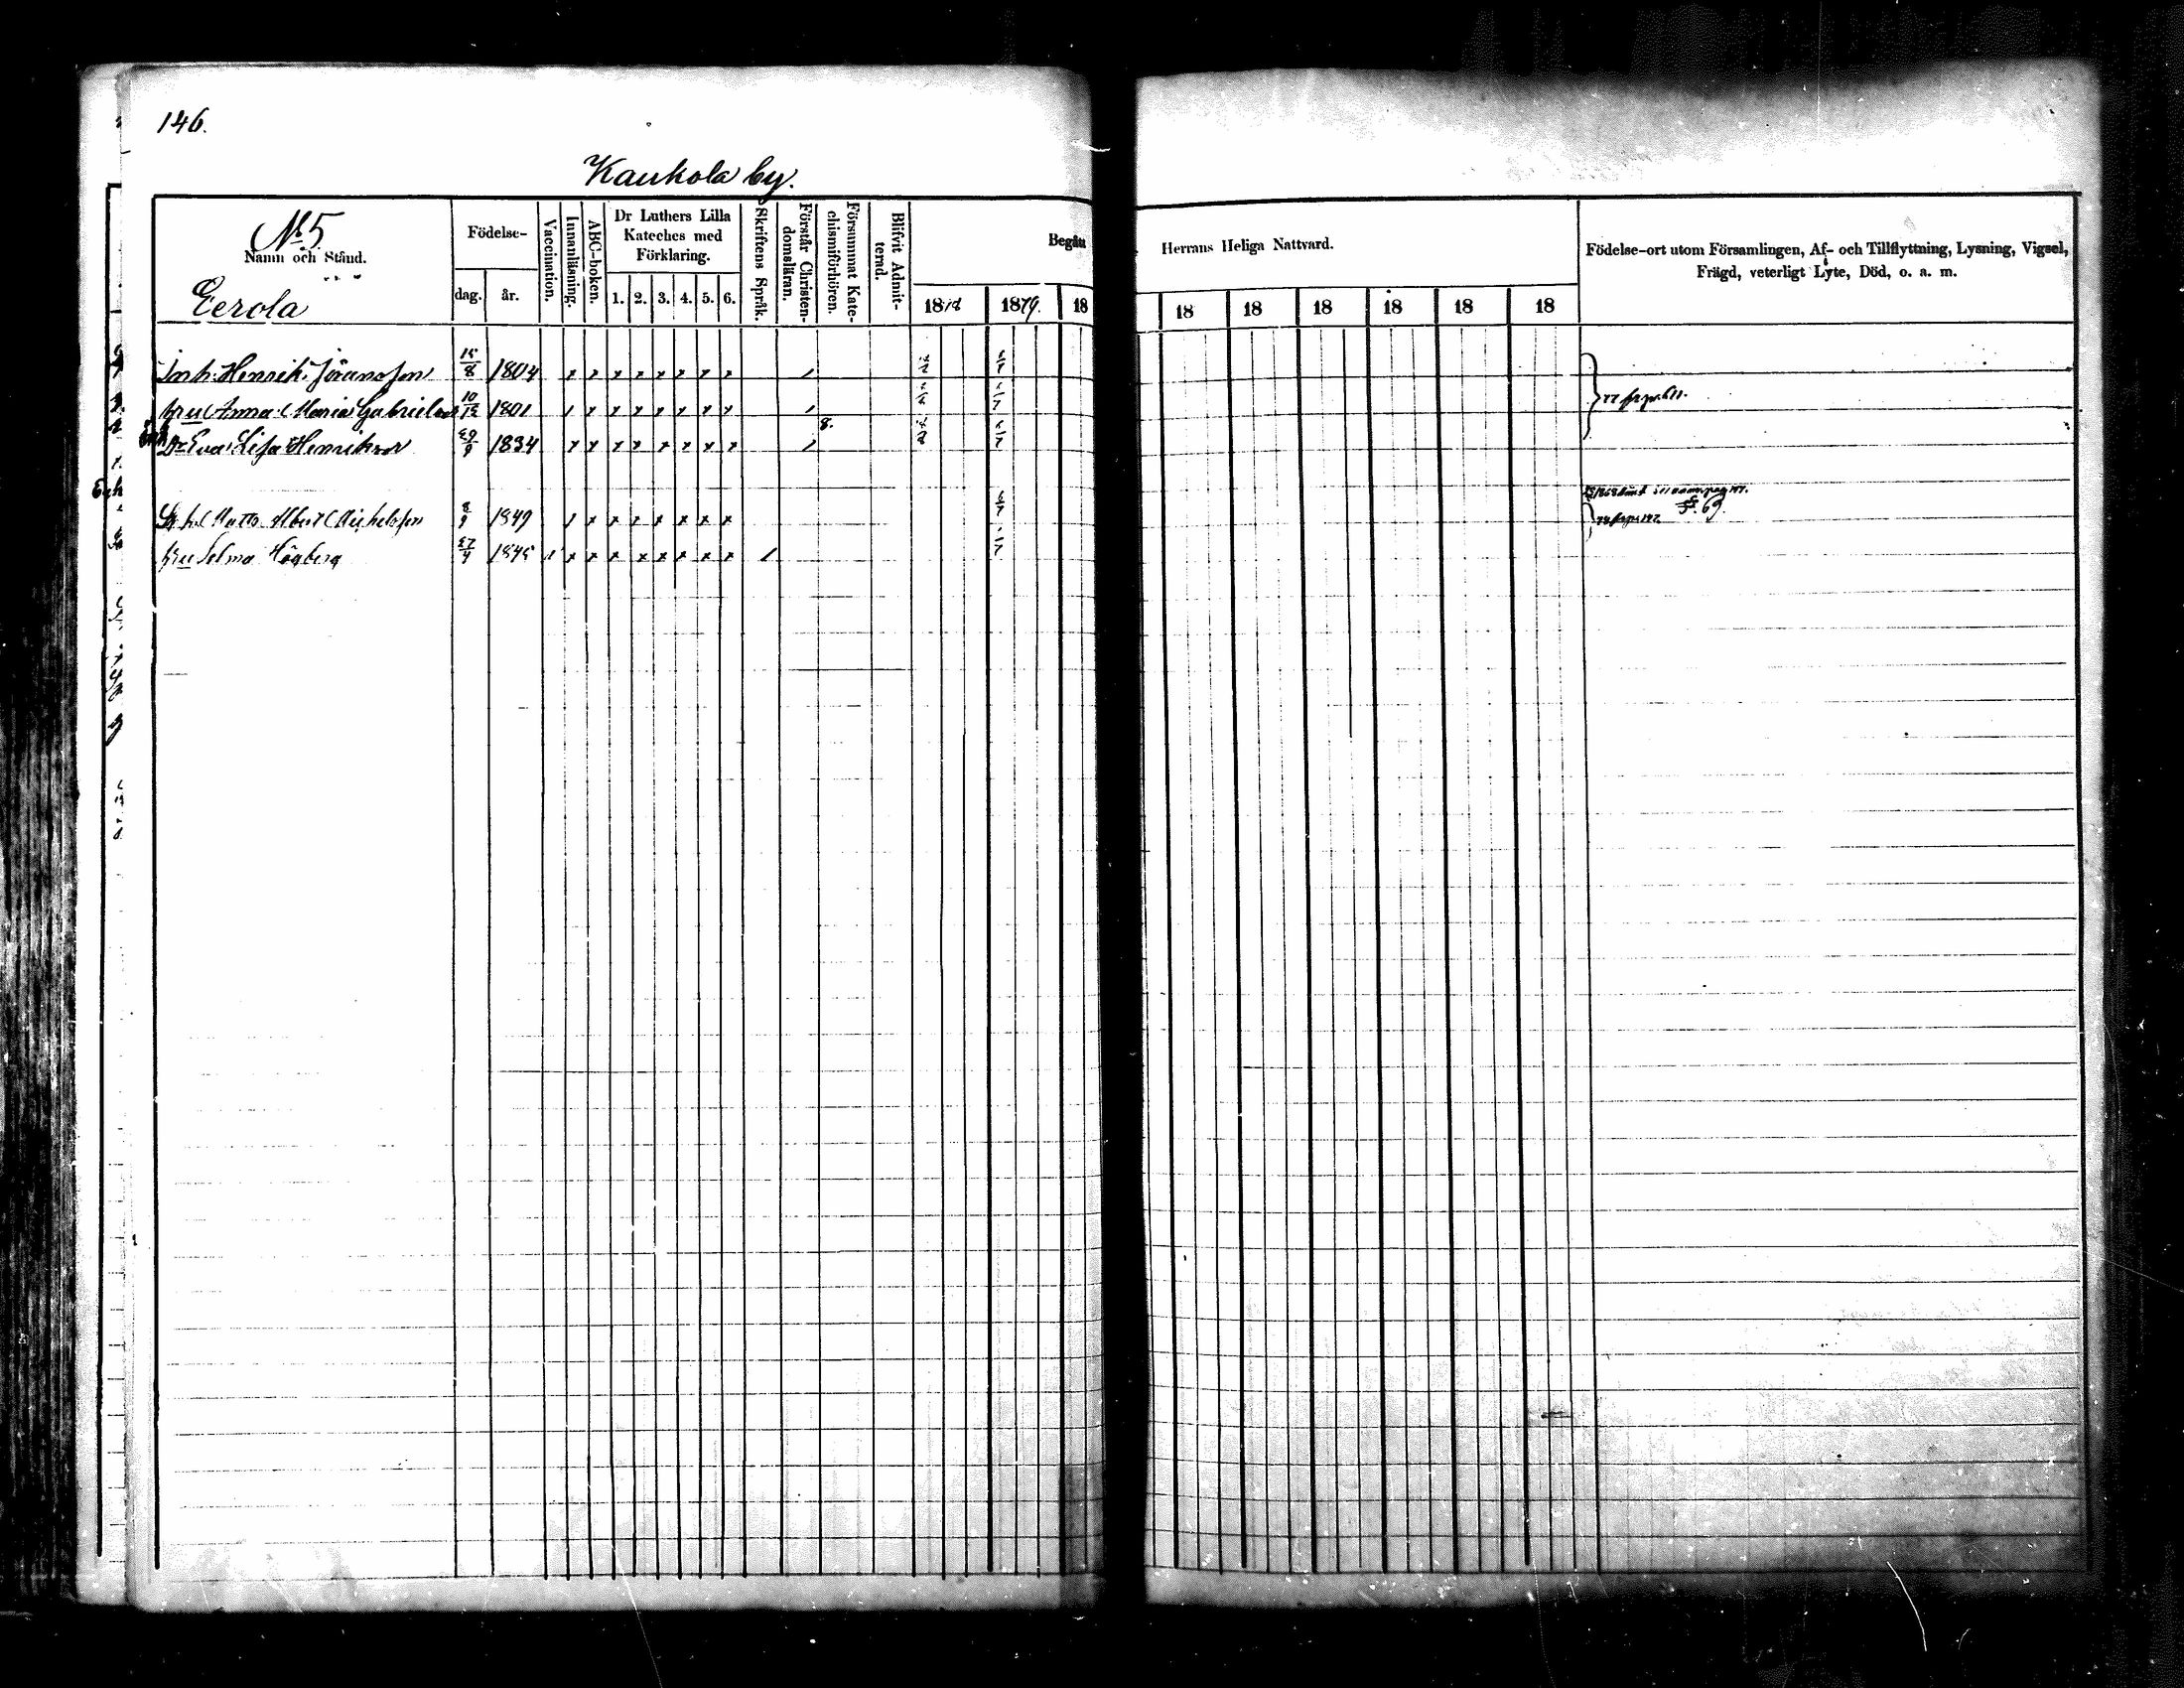 146.
Kaukola by.
No 5
Namn och Stånd.
Eerola
Födelse-
dag. år.
Vaccination.
Innanläsning.
ABC-boken.
Dr Luthers Lilla
Kateches med
Förklaring.
1. 2. 3. 4. 5. 6.
Skriftens Språk.
Förstår Christen-
domsläran.
Försummat Kate-
chismiförhören.
Blifvit Admit-
terad.
Begått Herrans Heliga Nattvard.
1878 1879. 18 18 18 18 18 18 18
Födelse-ort utom Församlingen, Af- och Tillflyttning, Lysning, Vigsel,
Frägd, veterligt Lyte, Död, o. a. m.
Inh. Henrik 15/8 1804 x x x x x x x x
Hru Anna Maria 10/12 1801 x x x x x x x
8.
Dr Eva Lisa Henriksdr 29/9 1834 x x x x x x x x
Matts Albert Michelsson 8/9 1849 x x x x x x x
F. 69.
Hru Selma Högberg 27/4 1845 x x x x x x x x